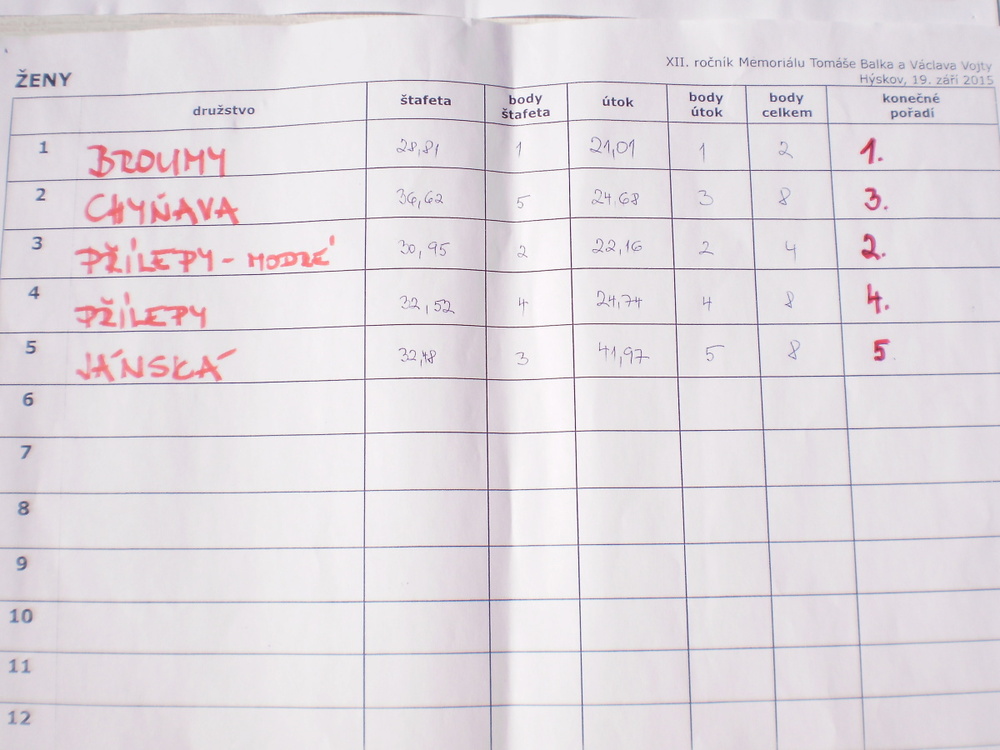 XII. ročník Memoriálu Tomáše Balka a Václava Vojty
ŽENY Hýskov, 19. září 2015
družstvo štafeta body štafeta útok body útok body celkem konečné pořadí
1 BROUMY 28,81 1 21,01 1 2 1.
2 CHYŇAVA 36,62 5 24,68 3 8 3.
3 PŘÍLEPY - MODRÉ 30,95 2 22,16 2 4 2.
4 PŘÍLEPY 32,52 4 24,74 4 8 4.
5 JÁNSKÁ 32,48 3 41,97 5 8 5
6
7
8
9
10
11
12